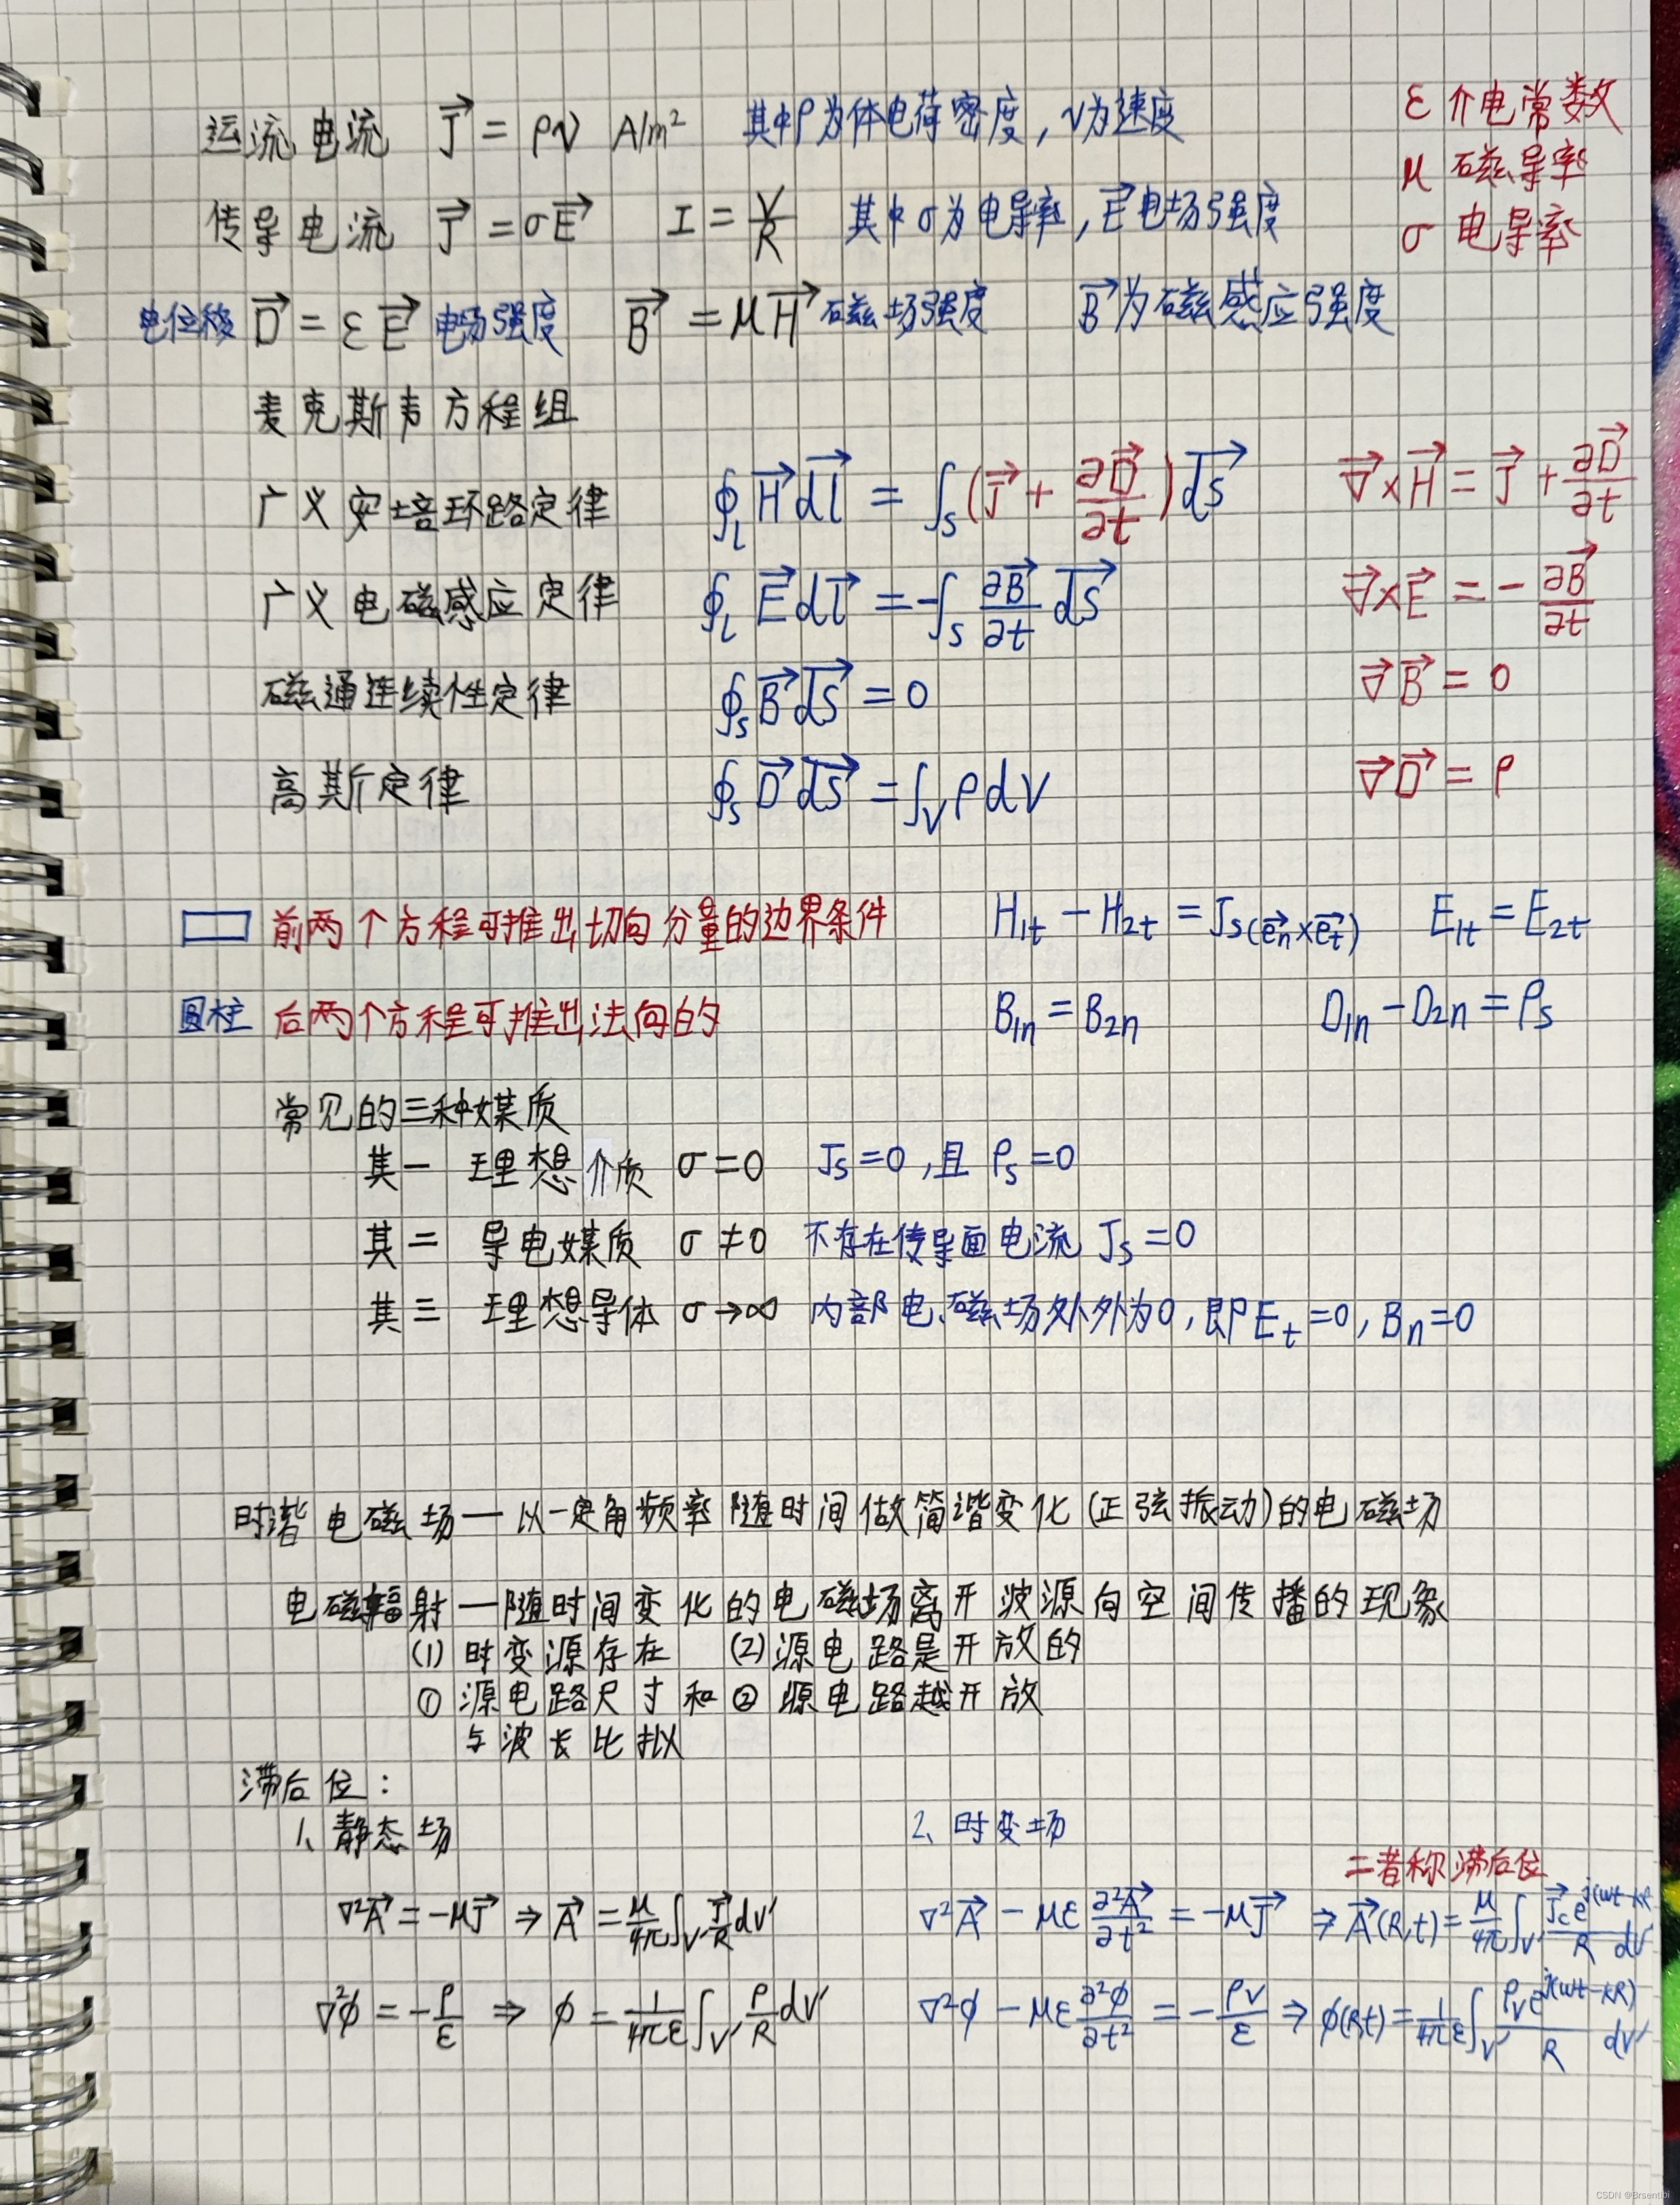 运流电流 J⃗ = ρv A/m² 其中ρ为体电荷密度，v为速度
ε 介电常数
μ 磁导率
σ 电导率
传导电流 J⃗ = σE⃗ I = V/R 其中σ为电导率，E⃗电场强度
电位移 D⃗ = εE⃗ 电场强度 B⃗ = μH⃗ 磁场强度 B⃗为磁感应强度
麦克斯韦方程组
广义安培环路定律 ∮_l H⃗ dl⃗ = ∫_S (J⃗ + ∂D⃗/∂t) dS⃗ ∇⃗×H⃗ = J⃗ + ∂D⃗/∂t
广义电磁感应定律 ∮_l E⃗ dl⃗ = -∫_S ∂B⃗/∂t dS⃗ ∇⃗×E⃗ = -∂B⃗/∂t
磁通连续性定律 ∮_S B⃗ dS⃗ = 0 ∇⃗B⃗ = 0
高斯定律 ∮_S D⃗ dS⃗ = ∫_V ρdV ∇⃗D⃗ = ρ
前两个方程可推出切向分量的边界条件 H₁t - H₂t = J_S(e⃗n×e⃗t) E₁t = E₂t
圆柱 后两个方程可推出法向的 B₁n = B₂n D₁n - D₂n = ρs
常见的三种媒质
其一 理想介质 σ=0 Js=0，且 ρs=0
其二 导电媒质 σ≠0 不存在传导面电流 Js=0
其三 理想导体 σ→∞ 内部电磁场外外为0，即Et=0，Bn=0
时谐电磁场—以一定角频率随时间做简谐变化(正弦振动)的电磁场
电磁辐射—随时间变化的电磁场离开波源向空间传播的现象
(1) 时变源存在 (2) 源电路是开放的
① 源电路尺寸和 ② 源电路越开放
与波长比拟
滞后位：
1、静态场 2、时变场
二者称滞后位
∇²A⃗ = -μJ⃗ ⇒ A⃗ = μ/4π ∫_V' J⃗/R dv' ∇²A⃗ - με ∂²A⃗/∂t² = -μJ⃗ ⇒ A⃗(R,t) = μ/4π ∫_V' J⃗c e^j(ωt-kR / R dv'
∇²φ = -ρ/ε ⇒ φ = 1/4πε ∫_V' ρ/R dv' ∇²φ - με ∂²φ/∂t² = -ρv/ε ⇒ φ(R,t) = 1/4πε ∫_V' ρv e^j(ωt-kR) / R dv'
CSDN @Brsentibi